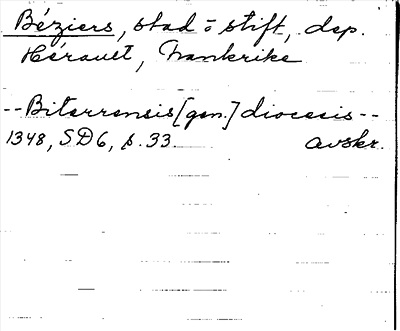 Béziers, stad o stift, dep.
Hérault, Frankrike
--Biterrensis [gen.] diocesis--
1348, SD6, s. 33. avskr.